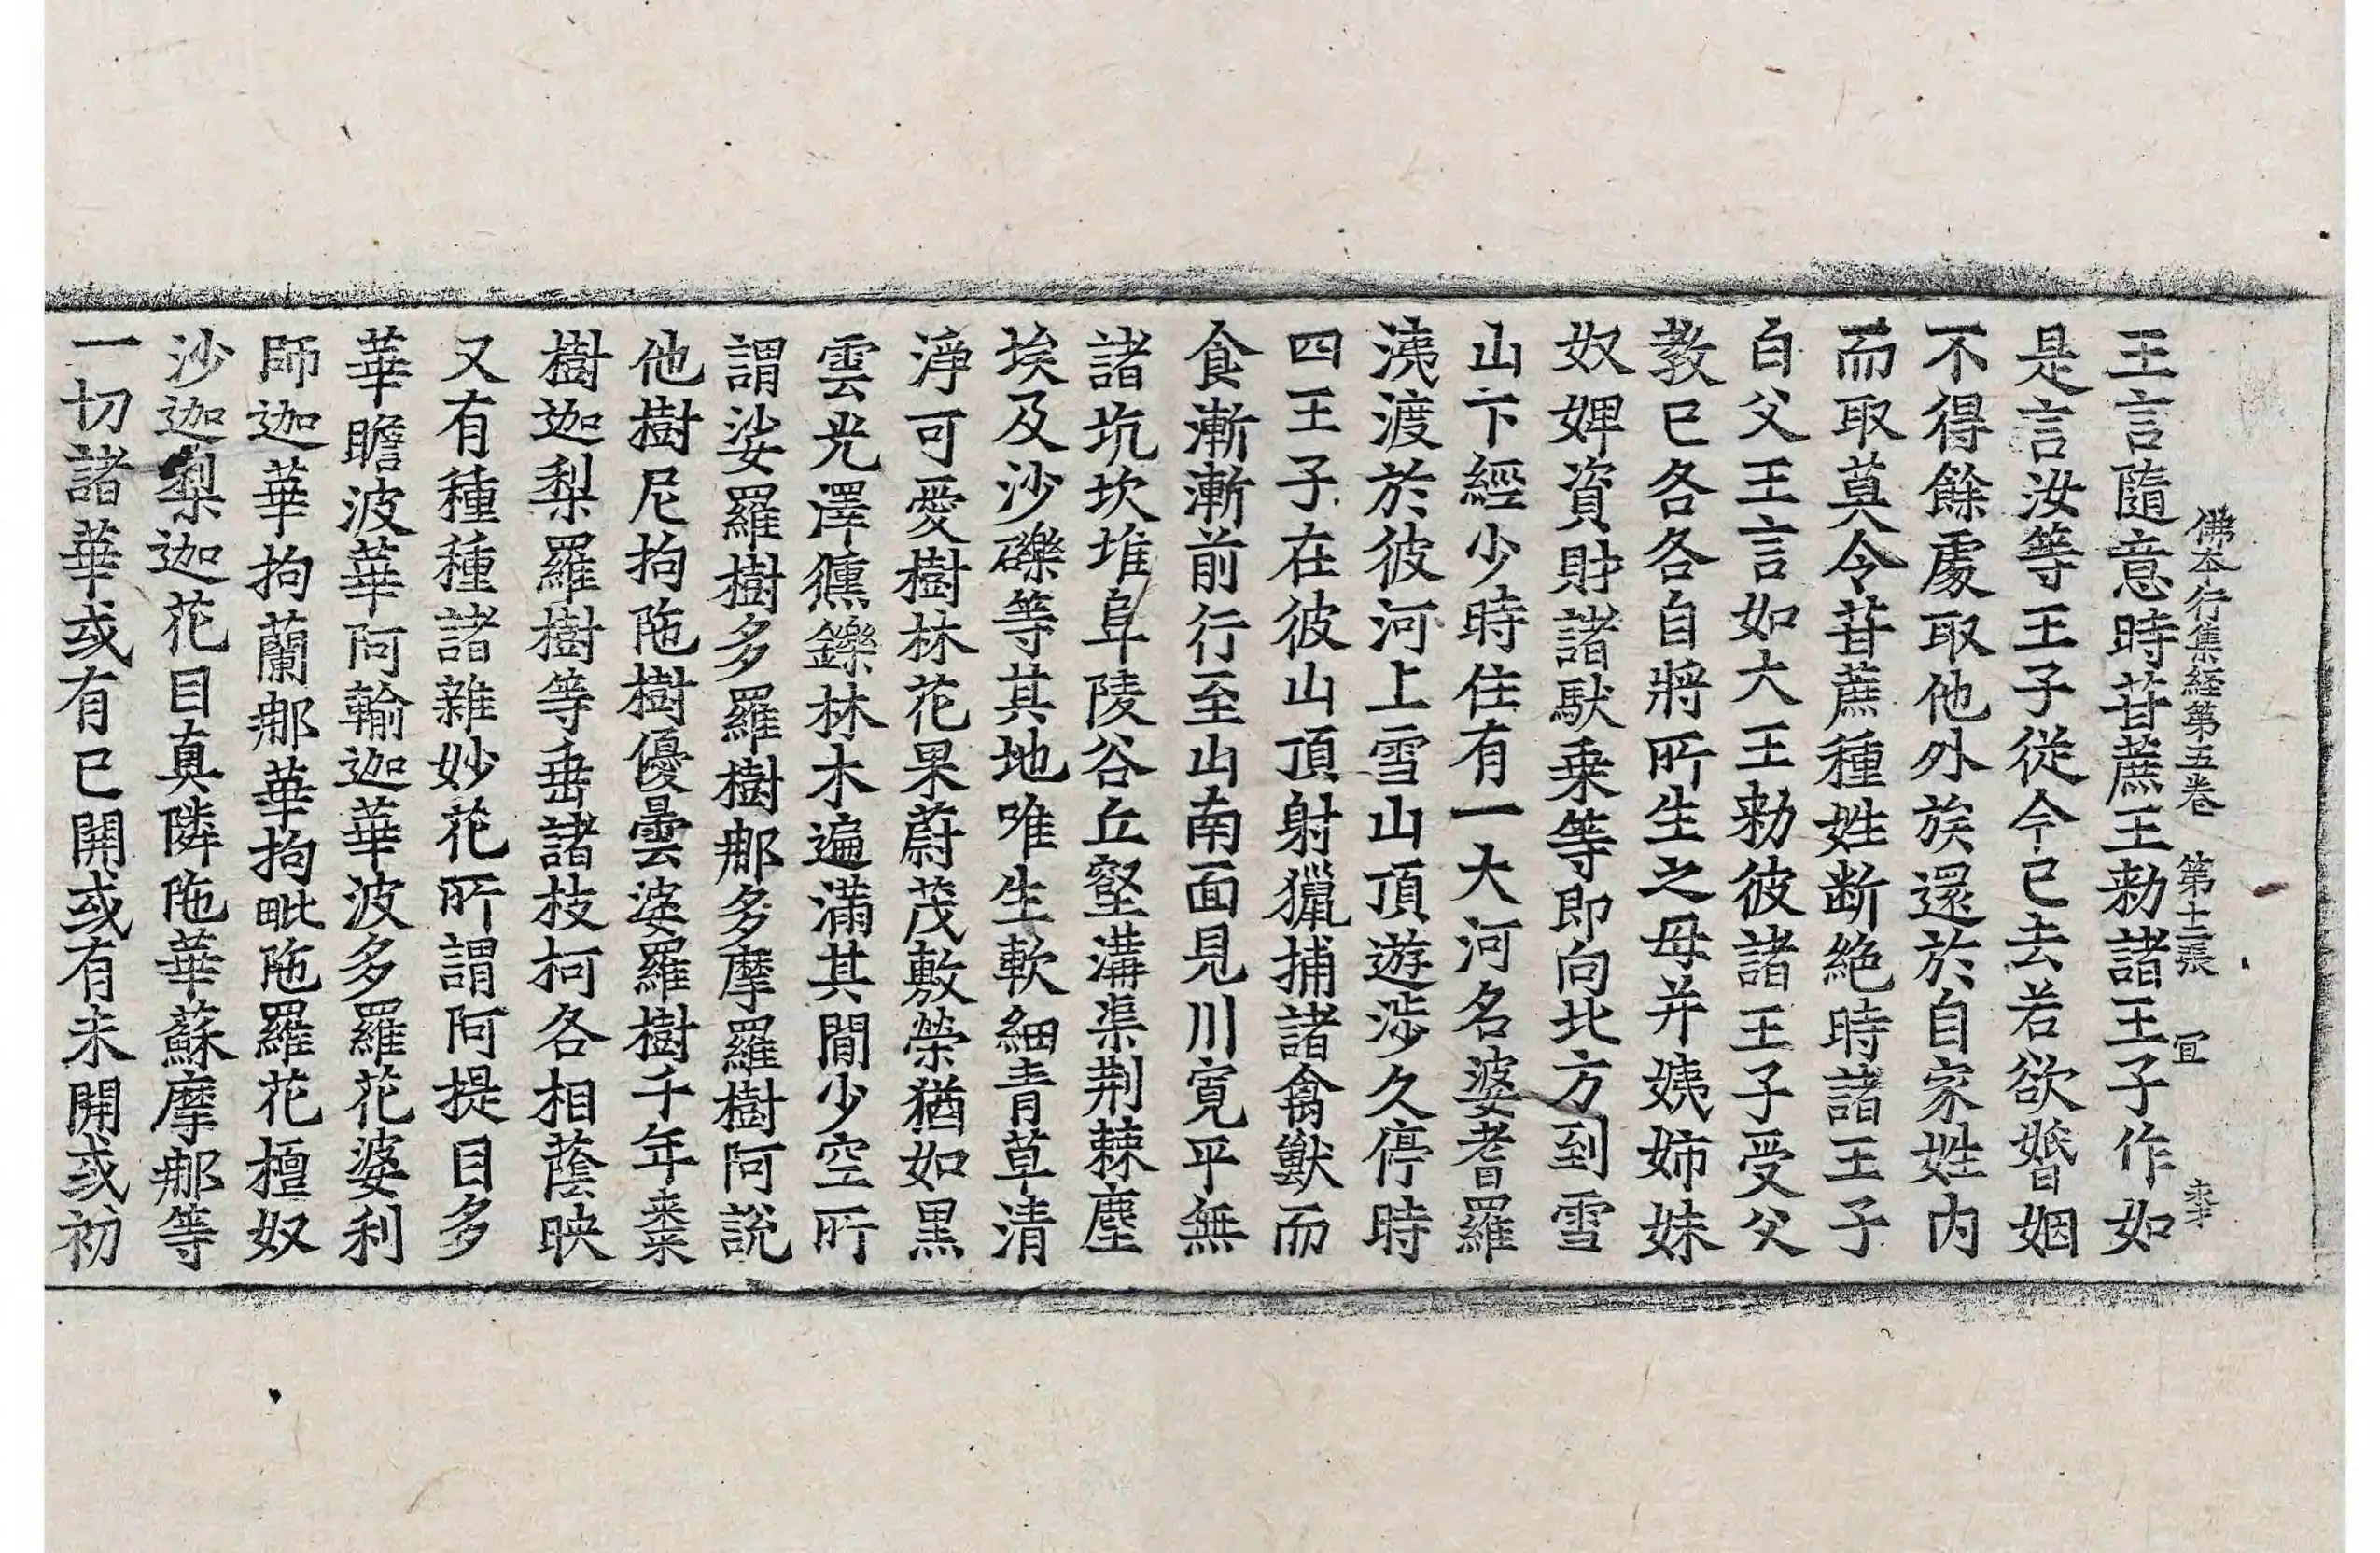 佛本行集経第五卷 第十二張 冝
王言隨意時苷蔗王勑諸王子作如
是言汝等王子從今已去若欲婚姻
不得餘處取他外族還於自家姓内
而取莫令苷蔗種姓断絶時諸王子
白父王言如大王勑彼諸王子受父
教已各各自將所生之母并姨姉妹
奴婢資財諸馱乗等即向北方到雪
山下經少時住有一大河名婆耆羅
洟渡於彼河上雪山頂遊涉久停時
四王子在彼山頂射獵捕諸禽獸而
食漸漸前行至山南面見川寛平無
諸坑坎堆阜陵谷丘壑溝渠荆棘塵
埃及沙礫等其地唯生軟細青草清
淨可愛樹林花果蔚茂敷榮猶如黒
雲光澤㸌鑠林木遍滿其間少空所
謂娑羅樹多羅樹那多摩羅樹阿説
他樹尼拘陁樹優曇婆羅樹千年棗
樹迦梨羅樹等垂諸枝柯各相蔭映
又有種種諸雜妙花所謂阿提目多
華瞻波華阿輸迦華波多羅花婆利
師迦華拘蘭那華拘毗陁羅花檀奴
沙迦梨迦花目真隣陁華蘇摩那等
一切諸華或有已開或有未開或初